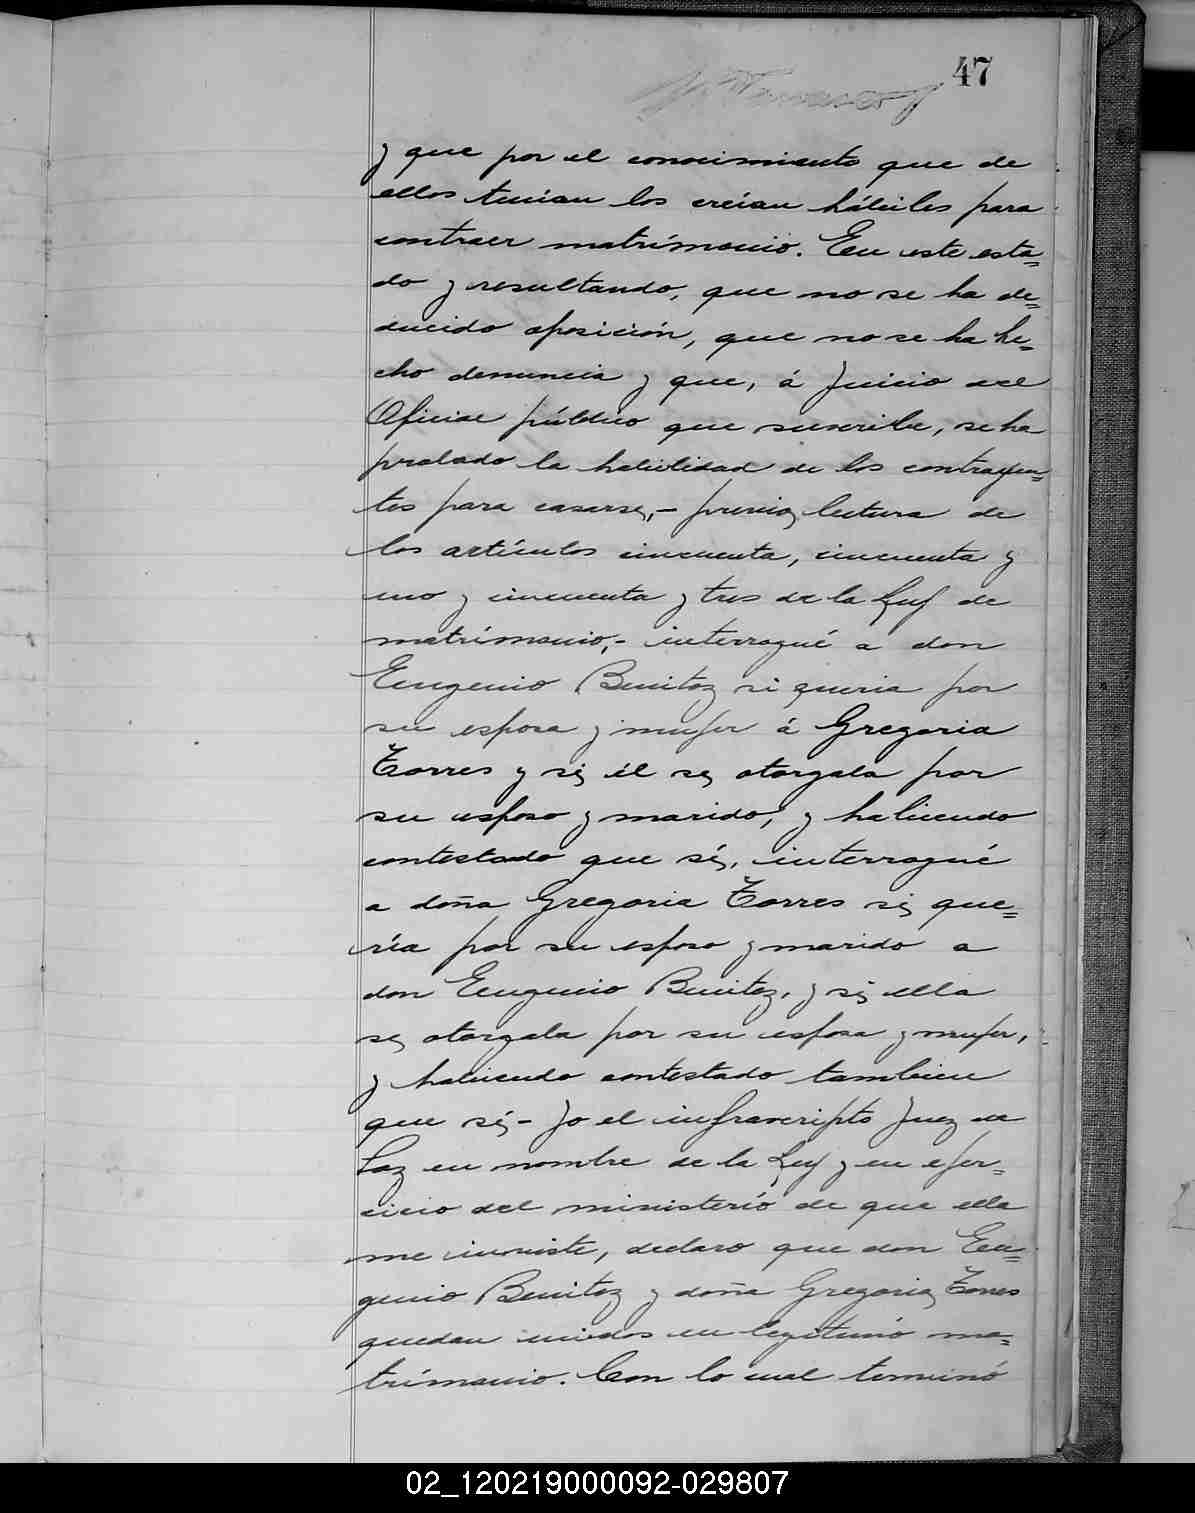 47
y que por el conocimiento que de
ellos tenían los creían hábiles para
contraer matrimonio. En este esta=
do y resultando, que no se ha de=
ducido oposición, que no se ha he=
cho denuncia y que, á juicio del
Oficial público que suscribe, se ha
probado la habilidad de los contrayen=
tes para casarse,- previa lectura de
los artículos cincuenta, cincuenta y
uno y cincuenta y tres de la Ley de
matrimonio,- interrogué a don
Eugenio Benitez si queria por
su esposa y mujer á Gregoria
Torres y si él se otorgaba por
su esposo y marido, y habiendo
contestado que sí, interrogué
a doña Gregoria Torres si que=
ría por su esposo y marido a
don Eugenio Benitez, y si ella
se otorgaba por su esposa y mujer,
y habiendo contestado tambien
que sí- Yo el infrascripto Juez de
Paz en nombre de la Ley y en ejer=
cicio del ministerio de que ella
me inviste, declaro que don Eu=
genio Benitez y doña Gregoria Torres
quedan unidos en legitimo ma=
trimonio. Con lo cual terminó
02_120219000092-029807